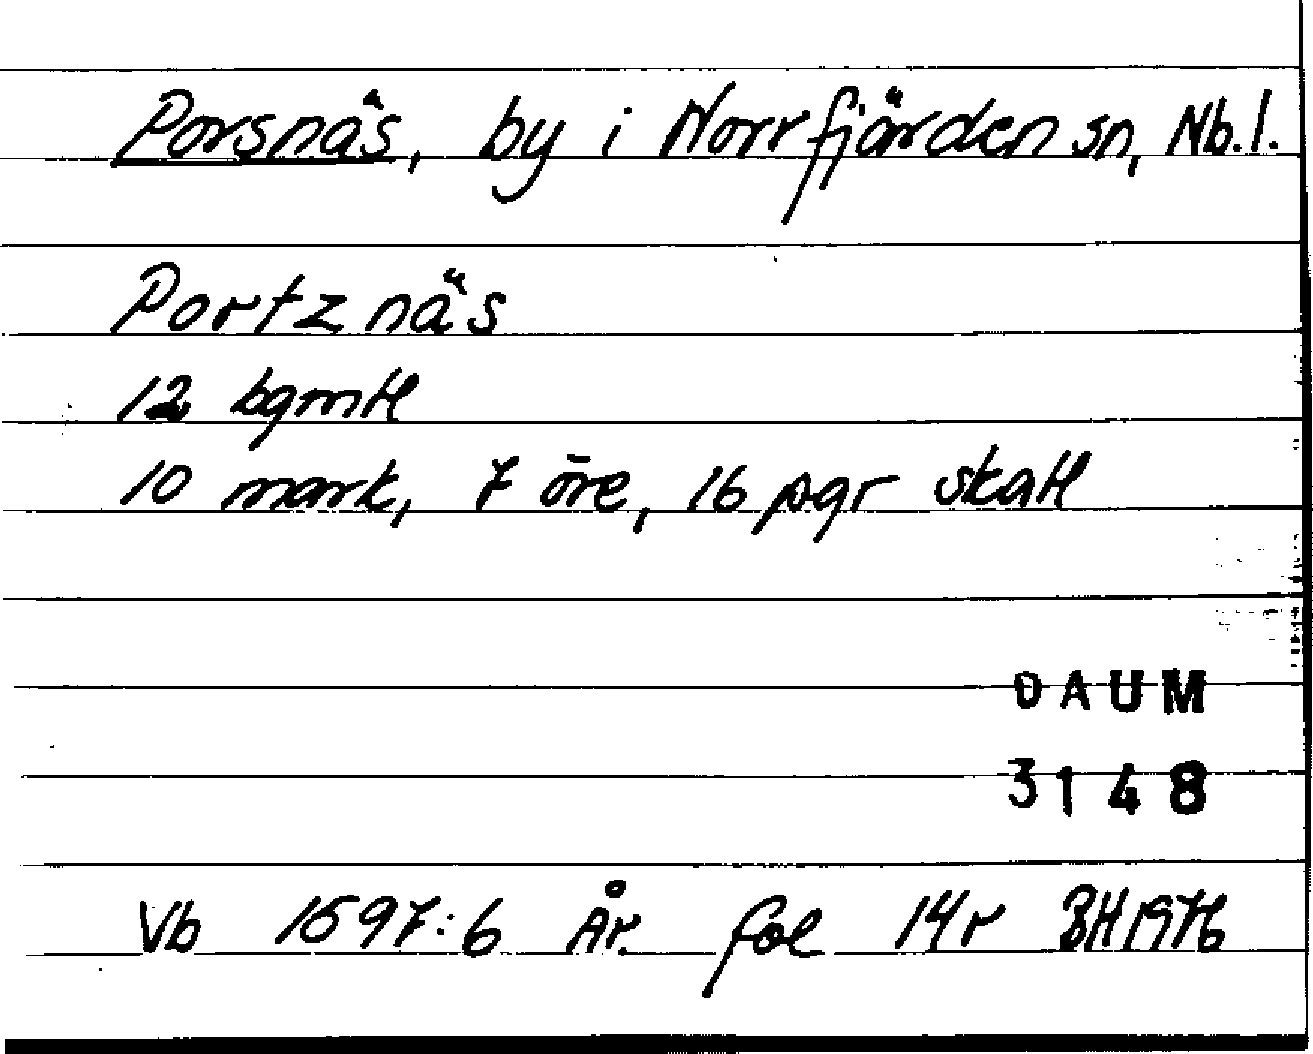 Porsnäs, by i Norrfjärden sn, Nb.l.
Portznäs
12 bgmtl
10 mark, 7 öre, 16 pgr skatt
DAUM
3148
Vb 1597:6 År. fol 14r BH 1976